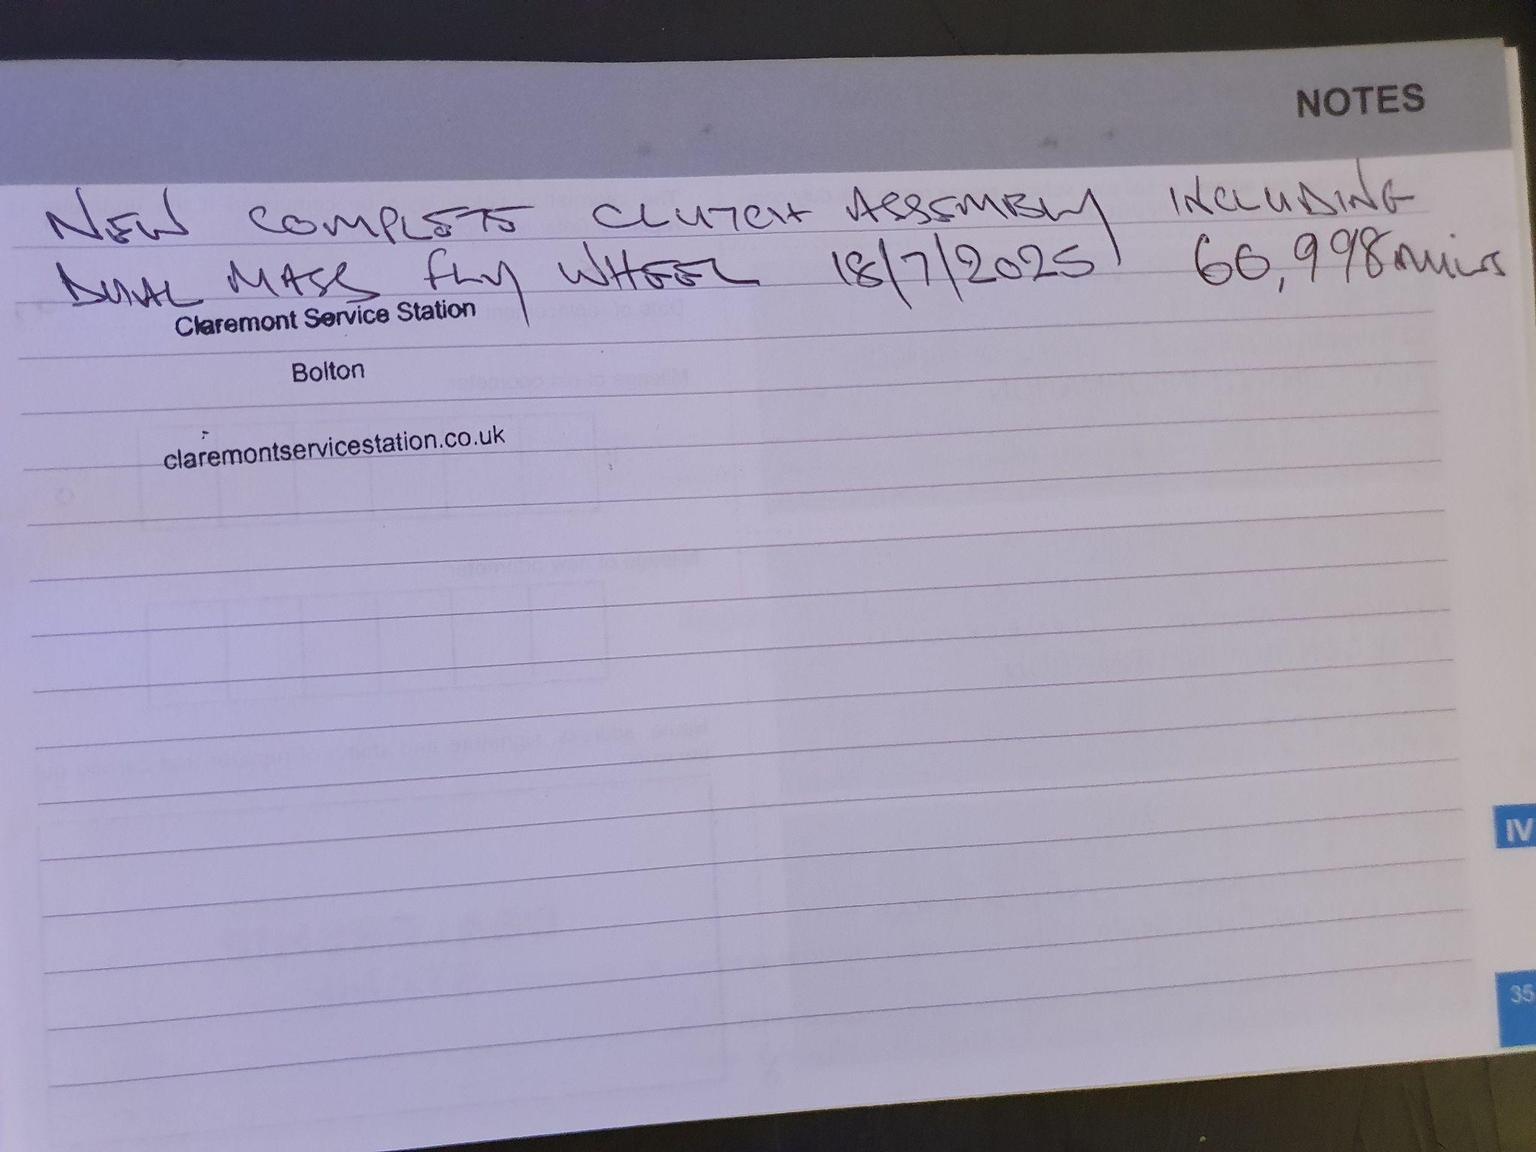 NOTES
NEW COMPLETE CLUTCH ASSEMBLY INCLUDING
DUAL MASS fly WHEEL 18/7/2025 66,998 miles
Claremont Service Station
Bolton
claremontservicestation.co.uk
IV
35